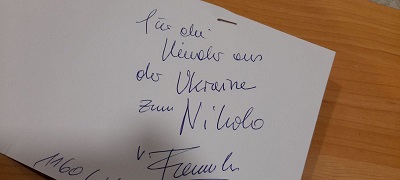 für die
Kinder aus
der Ukraine
zum Nikolo
v.
1160